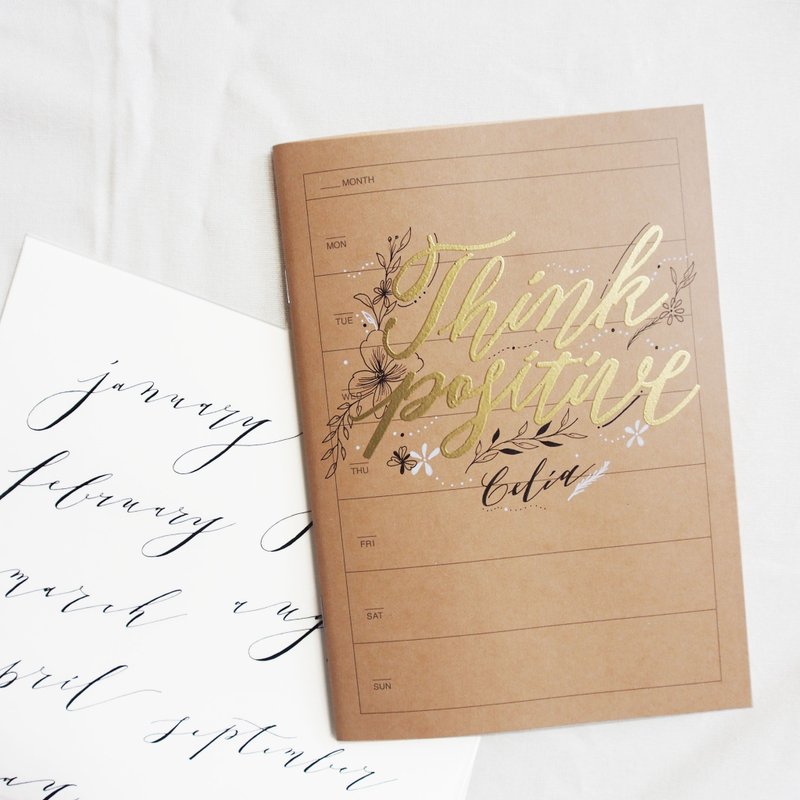 ____MONTH
MON
TUE
WED
THU
FRI
SAT
SUN
Think
positive
Celia
january
february
march
april
september